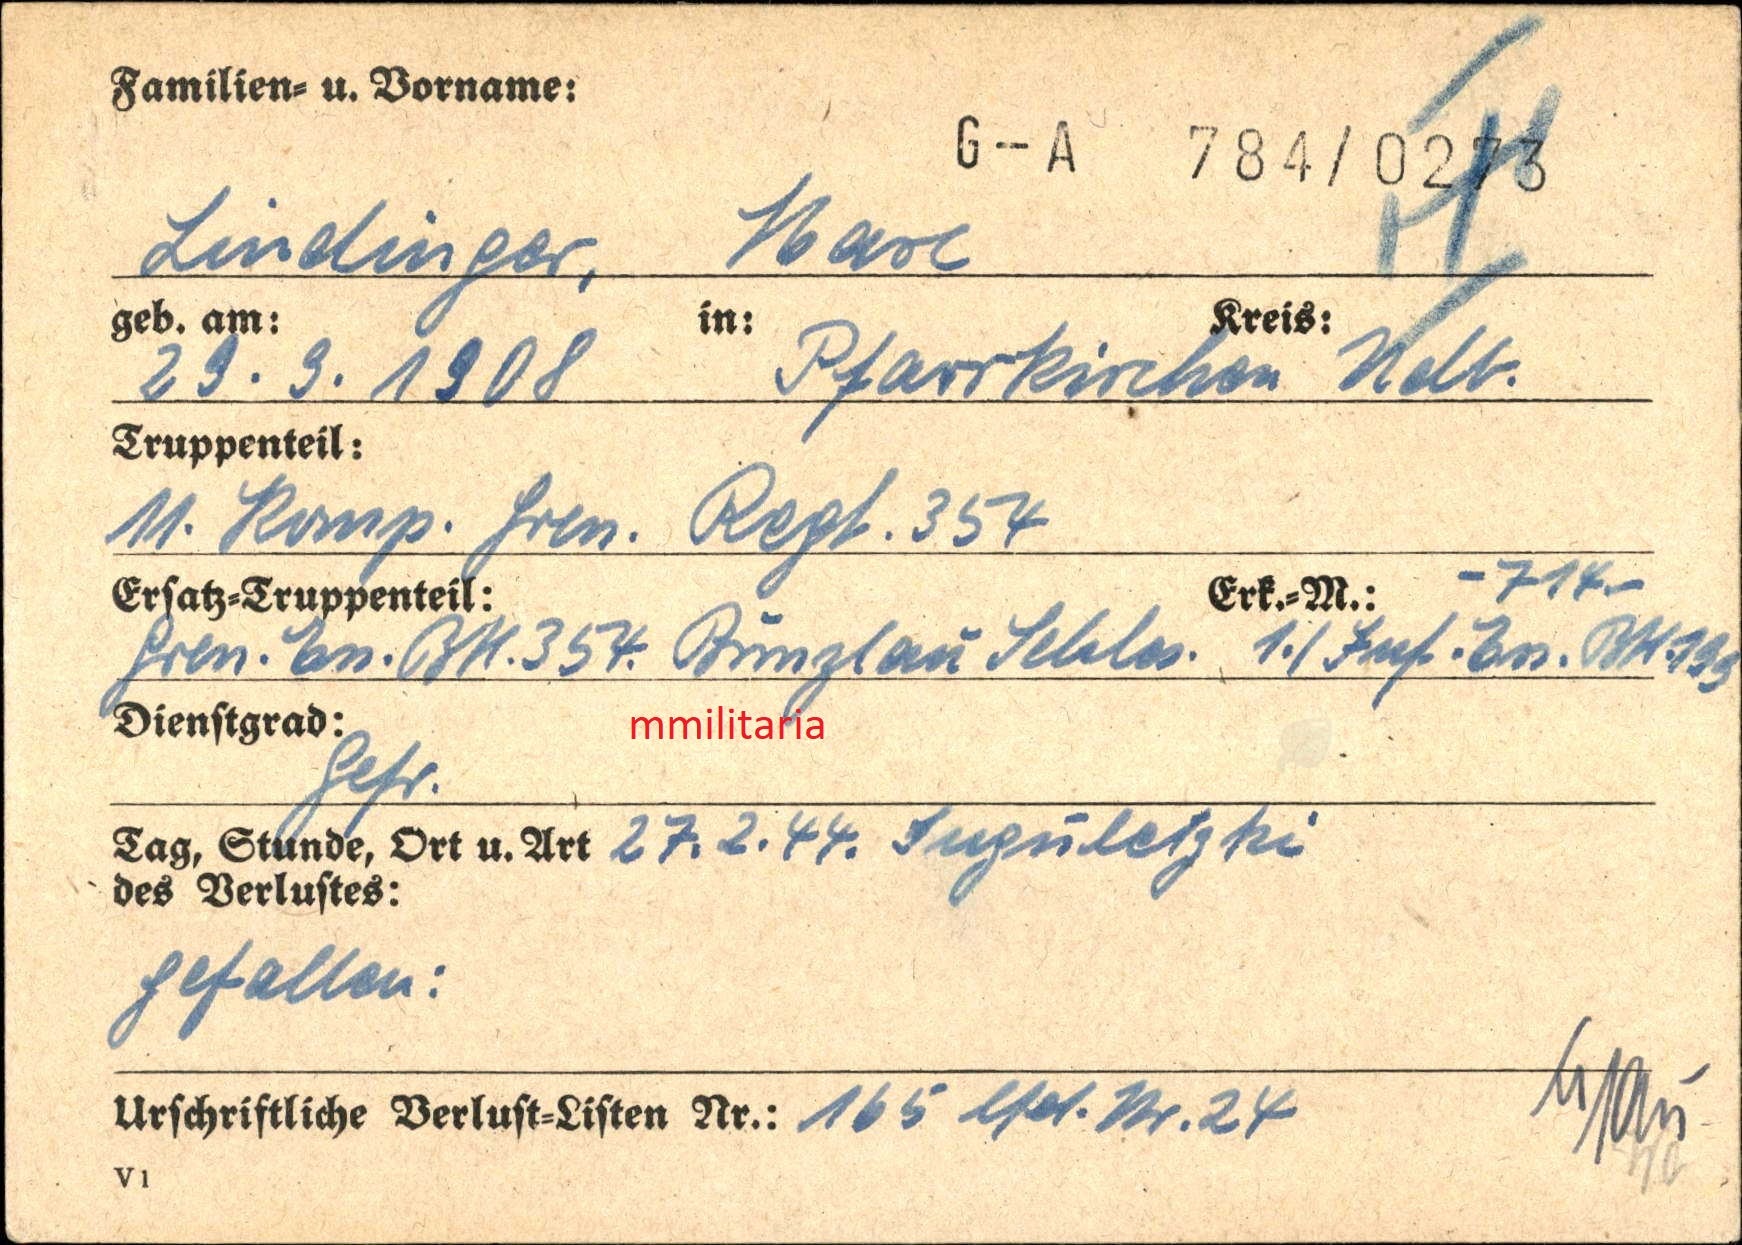 Familien- u. Vorname:
G-A 784/0273
Lindinger, Karl
geb. am: in: Kreis:
29. 9. 1908 Pfarrkirchen Ndb.
Truppenteil:
11. Komp. Gren. Regt. 354
Ersatz-Truppenteil: Erk.-M.: -714.-
Gren. Ers. Btl. 354. Bunzlau Schles. 1./Inf. Ers. Btl. 199
Dienstgrad:
mmilitaria
Gefr.
Tag, Stunde, Ort u. Art 27. 2. 44. Inguletzki
des Verlustes:
gefallen:
Urschriftliche Verlust-Listen Nr.: 165 lfd. Nr. 24
V 1